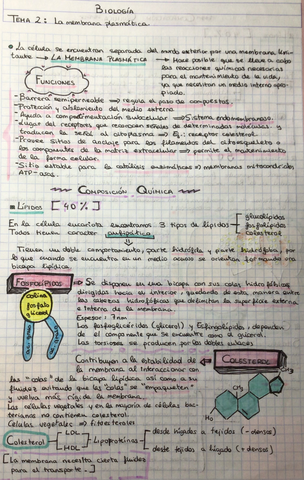 BIOLOGÍA
TEMA 2: La membrana plasmática.
• La célula se encuentran separada del mundo exterior por una membrana limi-
tante → LA MEMBRANA PLASMÁTICA → Hace posible que se lleve a cabo
las reacciones químicas necesarias
para el mantenimiento de la vida,
ya que necesitan un medio interno apro-
piado.
FUNCIONES
- Barrera semipermeable → regula el paso de compuestos.
- Protección y aislamiento del medio externo
- Ayuda a compartimentación subcelular → Sistema endomembranoso.
- Lugar del receptores que reconocen señales de determinadas moléculas y
traducen la señal al citoplasma → Ej: receptores celulares.
- Provee sitios de anclaje para los filamentos del citoesqueleto o
los componentes de la matriz extracelular → permite el mantenimiento
de la forma celular.
- Sitio estable para la catálisis enzimáticas → membranas mitocondriales,
ATP-asas
COMPOSICIÓN QUÍMICA
LÍPIDOS [40%]
En la célula eucariota encontramos 3 tipos de lípidos
glucolípidos
fosfolípidos
colesterol
Todos tienen carácter anfipático
Tienen un doble comportamiento, parte hidrófila y parte hidrófoba,
lo que cuando se encuentra en un medio acuoso se orientan formando una
bicapa lipídica.
FOSFOLÍPIDOS
→ Se disponen en una bicapa con sus colas hidrofóbicas
dirigidas hacia su interior, quedando de esta manera entre
las cabezas hidrofílicas que delimitan la superficie externa
e interna de la membrana.
Espesor: 7nm
Los fosfoglicéridos (glicerol) y Esfingolípidos, dependen
de el componente que se encuentre unido al glicerol.
Las torsiones se producen por los dobles enlaces
colina
fosfato
glicerol
Contribuyen a la estabilidad de
la membrana al interaccionar con
COLESTEROL
las "colas" de la bicapa lipídica así como a su
fluidez evitando que las "colas" se "empaqueten"
y vuelva más rígida la membrana.
Las células vegetales y en la mayoría de células bac-
terianas no contienen colesterol.
Células vegetales → fitoesteroles
CH₃
CH₃
HO
Colesterol
LDL
HDL
Lipoproteínas
desde hígados a tejidos (- densas)
desde tejidos a hígado (+ densos)
[La membrana necesita cierta fluidez
para el transporte -]